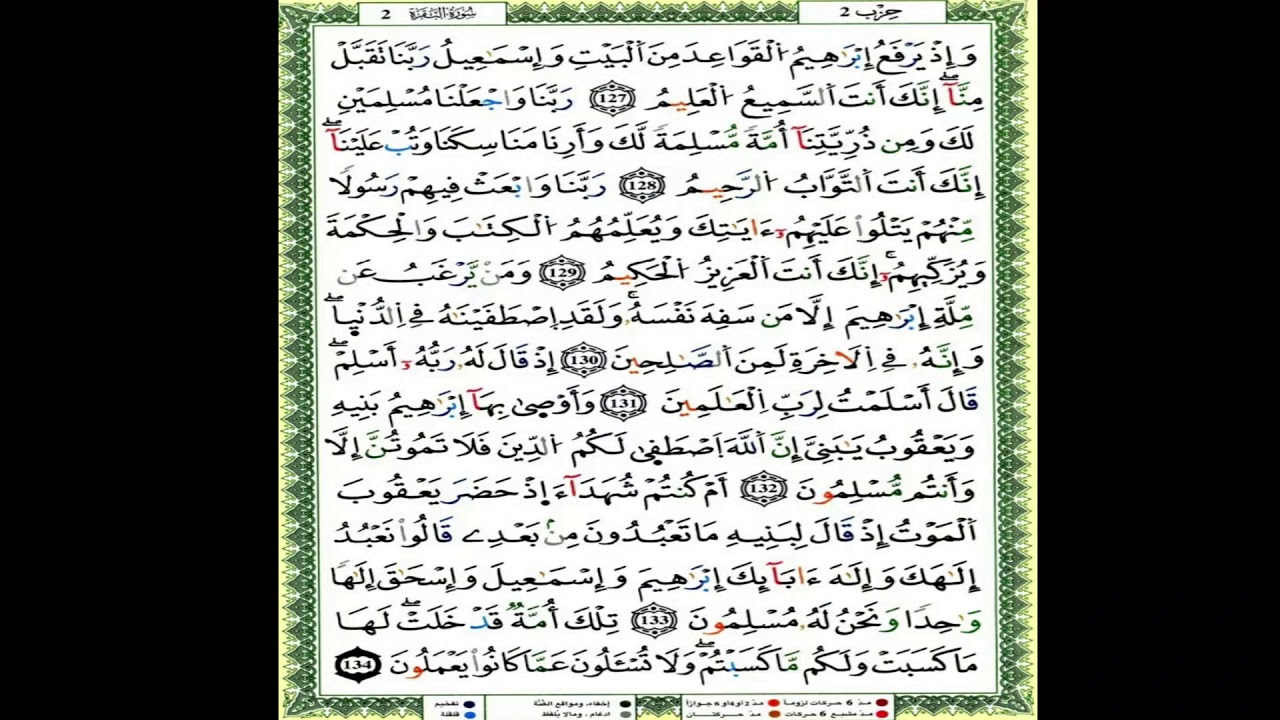 حِزْب 2
سُورَةُ الْبَقَرَة 2
وَإِذْ يَرْفَعُ إِبْرَٰهِيمُ اُ۬لْقَوَاعِدَ مِنَ اَ۬لْبَيْتِ وَإِسْمَٰعِيلُ رَبَّنَا تَقَبَّلْ
مِنَّآۖ إِنَّكَ أَنتَ اَ۬لسَّمِيعُ اُ۬لْعَلِيمُ 127 رَبَّنَا وَاجْعَلْنَا مُسْلِمَيْنِ
لَكَ وَمِن ذُرِّيَّتِنَآ أُمَّةٗ مُّسْلِمَةٗ لَّكَ وَأَرِنَا مَنَاسِكَنَا وَتُبْ عَلَيْنَآۖ
إِنَّكَ أَنتَ اَ۬لتَّوَّابُ اُ۬لرَّحِيمُ 128 رَبَّنَا وَابْعَثْ فِيهِمْ رَسُولٗا
مِّنْهُمْ يَتْلُواْ عَلَيْهِمُۥٓ ءَايَٰتِكَ وَيُعَلِّمُهُمُ اُ۬لْكِتَٰبَ وَالْحِكْمَةَ
وَيُزَكِّيهِمُۥٓۚ إِنَّكَ أَنتَ اَ۬لْعَزِيزُ اُ۬لْحَكِيمُ 129 وَمَنْ يَّرْغَبُ عَن
مِّلَّةِ إِبْرَٰهِيمَ إِلَّا مَن سَفِهَ نَفْسَهُۥۚ وَلَقَدِ اِ۪صْطَفَيْنَٰهُ فِے اِ۬لدُّنْي۪اۖ
وَإِنَّهُۥ فِے اِ۬لَاخِرَةِ لَمِنَ اَ۬لصَّٰلِحِينَ 130 إِذْ قَالَ لَهُۥ رَبُّهُۥٓ أَسْلِمْۖ
قَالَ أَسْلَمْتُ لِرَبِّ اِ۬لْعَٰلَمِينَ 131 وَأَوْص۪يٰ بِهَآ إِبْرَٰهِيمُ بَنِيهِ
وَيَعْقُوبُ يَٰبَنِيَّ إِنَّ اَ۬للَّهَ اَ۪صْطَف۪يٰ لَكُمُ اُ۬لدِّينَ فَلَا تَمُوتُنَّ إِلَّا
وَأَنتُم مُّسْلِمُونَ 132 أَمْ كُنتُمْ شُهَدَآءَ اِ۪ذْ حَضَرَ يَعْقُوبَ
اَ۬لْمَوْتُ إِذْ قَالَ لِبَنِيهِ مَا تَعْبُدُونَ مِنۢ بَعْدِے قَالُواْ نَعْبُدُ
إِلَٰهَكَ وَإِلَٰهَ ءَابَآئِكَ إِبْرَٰهِيمَ وَإِسْمَٰعِيلَ وَإِسْحَٰقَ إِلَٰهٗا
وَٰحِدٗا وَنَحْنُ لَهُۥ مُسْلِمُونَ 133 تِلْكَ أُمَّةٞ قَدْ خَلَتْۖ لَهَا
مَا كَسَبَتْ وَلَكُم مَّا كَسَبْتُمْۖ وَلَا تُسْـَٔلُونَ عَمَّا كَانُواْ يَعْمَلُونَ 134
مدّ 6 حركات لزوماً مدّ 2 أو 4 أو 6 جوازاً إخفاء، ومواقع الغُنَّة تفخيم
مدّ مشبع 6 حركات مدّ حركتان ادغام، ومالا يُلفظ قلقلة